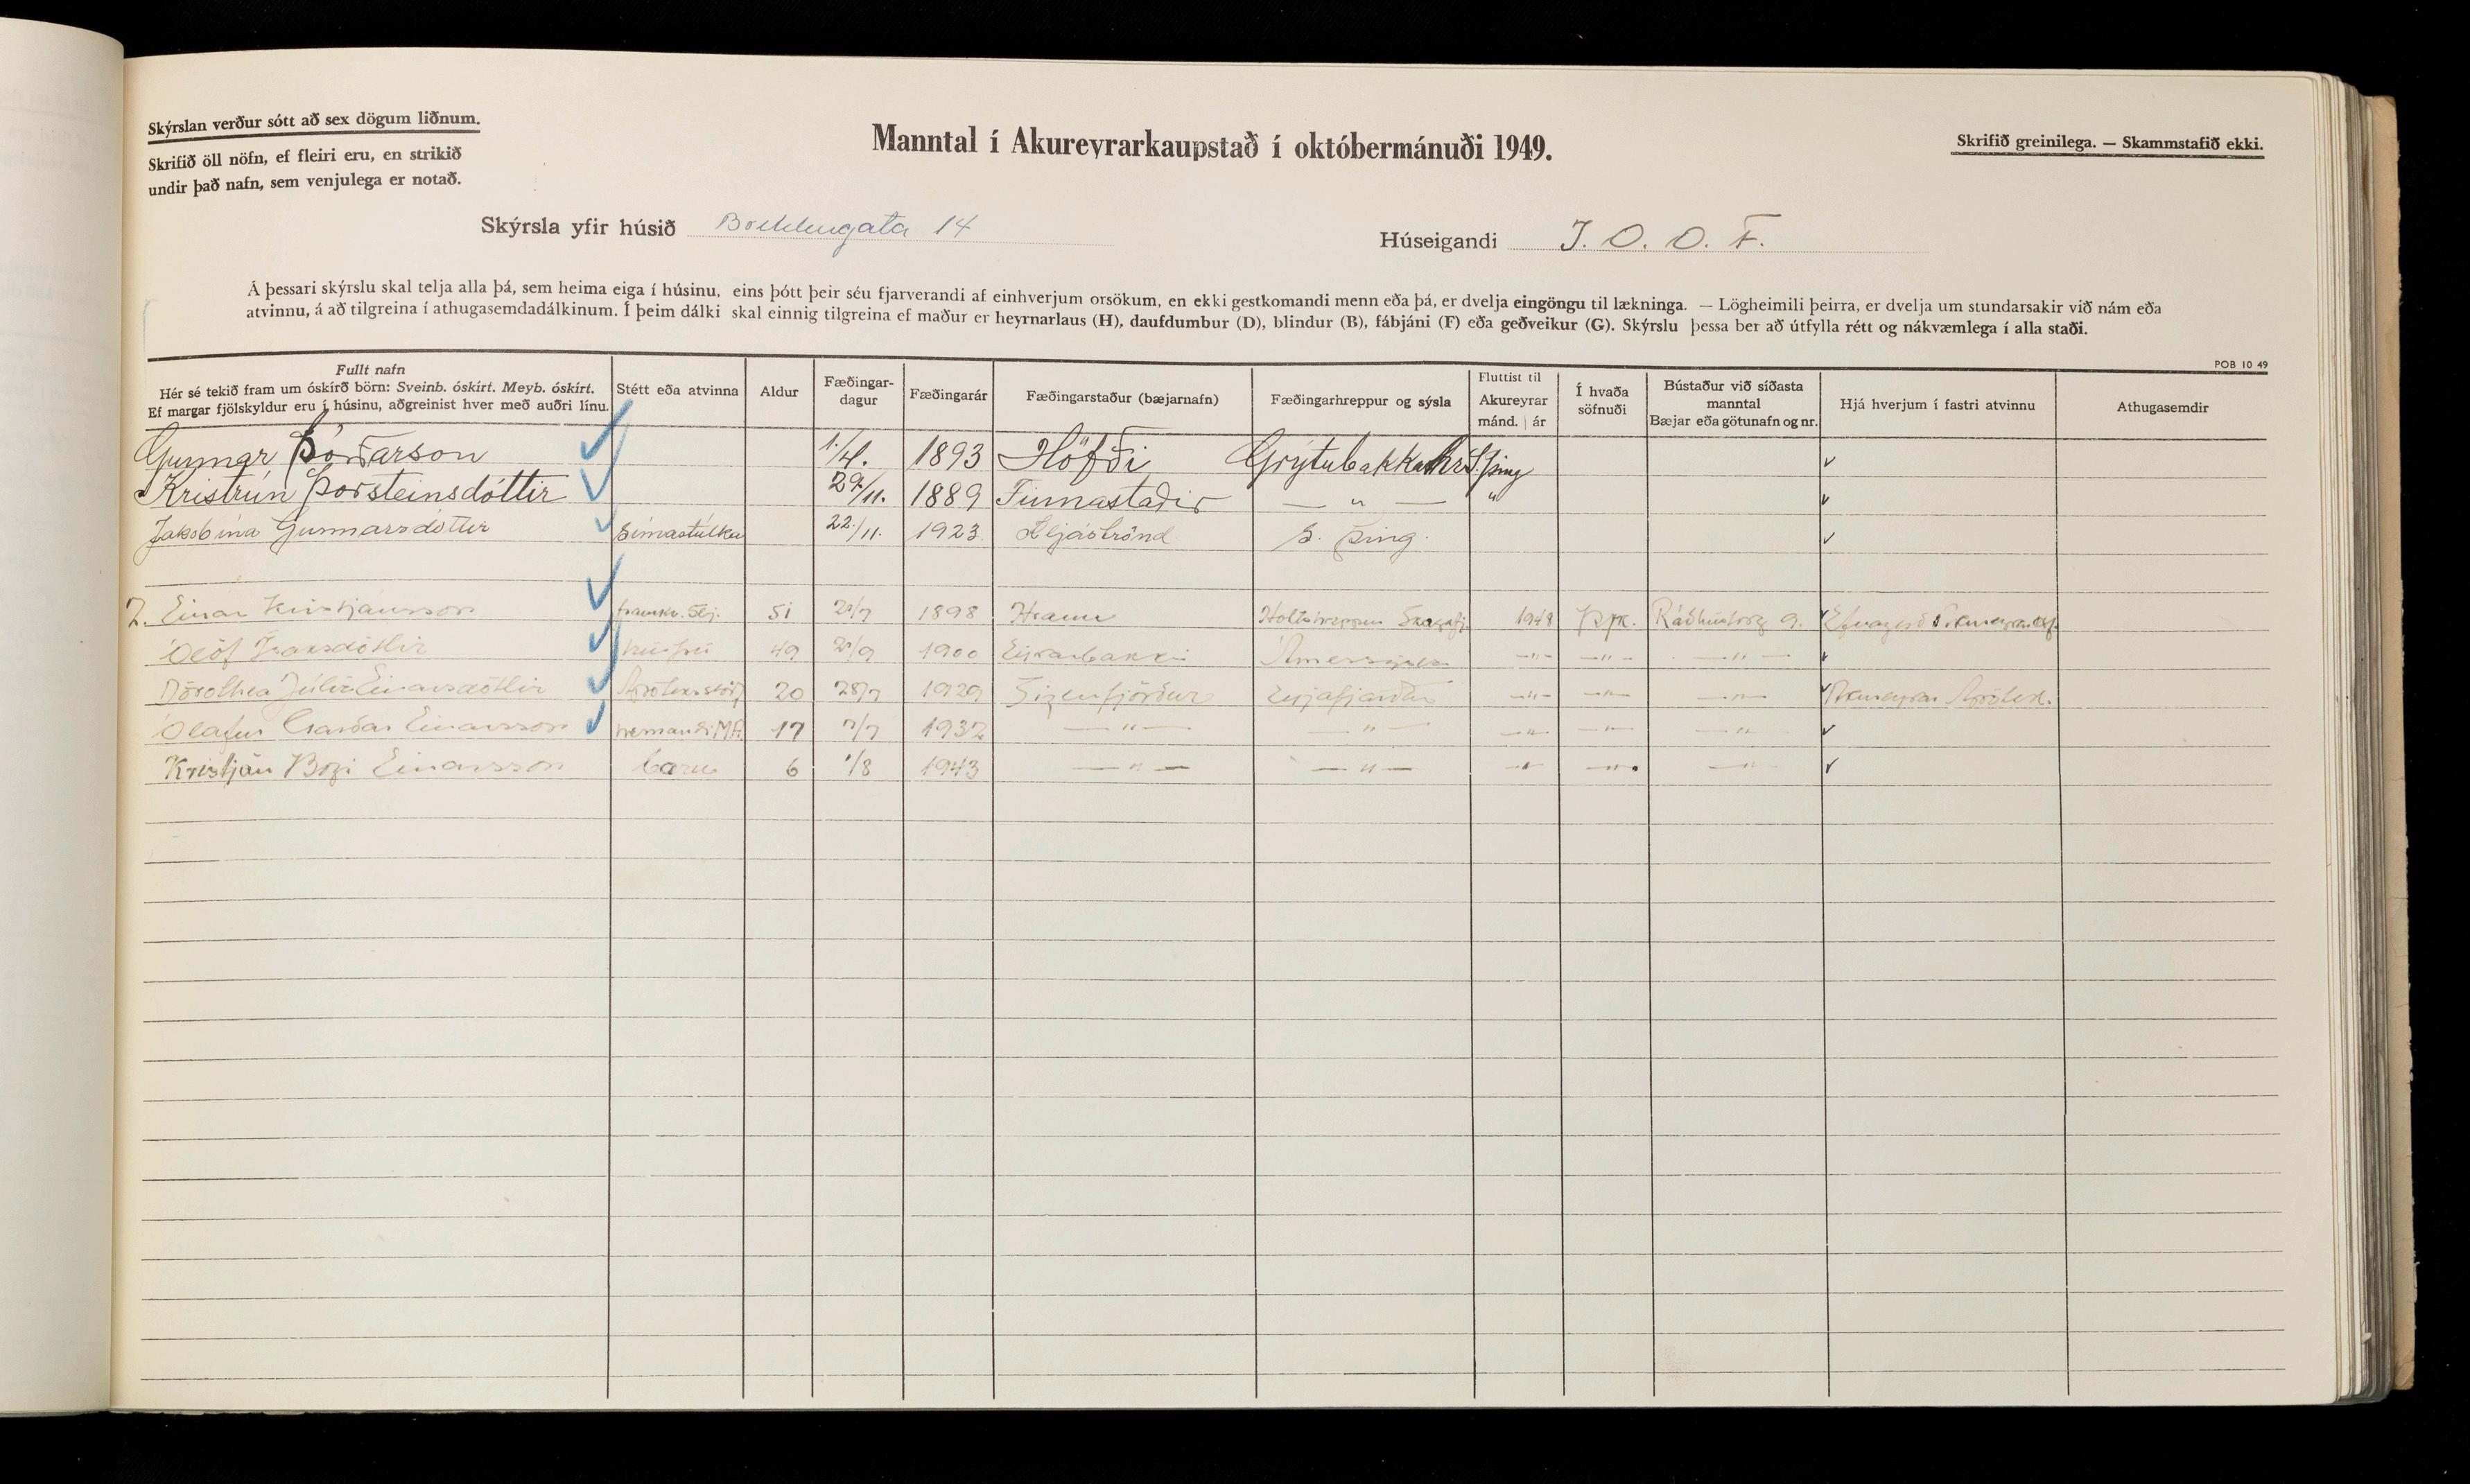 Skýrslan verður sótt að sex dögum liðnum.
Skrifið öll nöfn, ef fleiri eru, en strikið
undir það nafn, sem venjulega er notað.
Manntal í Akureyrarkaupstað í októbermánuði 1949.
Skrifið greinilega. — Skammstafið ekki.
Skýrsla yfir húsið Brekkugata 14 Húseigandi I. O. O. F.
Á þessari skýrslu skal telja alla þá, sem heima eiga í húsinu, eins þótt þeir séu fjarverandi af einhverjum orsökum, en ekki gestkomandi menn eða þá, er dvelja eingöngu til lækninga. — Lögheimili þeirra, er dvelja um stundarsakir við nám eða
atvinnu, á að tilgreina í athugasemdadálkinum. Í þeim dálki skal einnig tilgreina ef maður er heyrnarlaus (H), daufdumbur (D), blindur (B), fábjáni (F) eða geðveikur (G). Skýrslu þessa ber að útfylla rétt og nákvæmlega í alla staði.
POB 10 49
Fullt nafn
Hér sé tekið fram um óskírð börn: Sveinb. óskírt. Meyb. óskírt.
Ef margar fjölskyldur eru í húsinu, aðgreinist hver með auðri línu.
Stétt eða atvinna
Aldur
Fæðingar-
dagur
Fæðingarár
Fæðingarstaður (bæjarnafn)
Fæðingarhreppur og sýsla
Fluttist til
Akureyrar
mánd. | ár
Í hvaða
söfnuði
Bústaður við síðasta
manntal
Bæjar eða götunafn og nr.
Hjá hverjum í fastri atvinnu
Athugasemdir
Gunnar Þórðarson 1./4. 1893 Höfði Grýtubakkahr S. Þing
Kristrún Þorsteinsdóttir 29/11. 1889 Finnastaðir — " — "
Jakobína Gunnarsdóttir símastúlka 22./11. 1923 Hljáströnd S. Þing.
2. Einar Kristjánsson framkv.stj. 51 21/7 1898 Hraun Holtshreppur Skagafj. 1948 Þjk. Ráðhústorg 9. Efnagerð Akureyrar h.f.
Ólöf Ísaksdóttir húsfrú 49 21/9 1900 Eyrarbakki Árnessýsla —"— —"— —"—
Dórothea Júlía Einarsdóttir 20 28/7 1929 Siglufjörður Eyjafjarðar —"— —"— —"— Akureyrar Apótek.
Ólafur Garðar Einarsson nemandi M.A. 17 7/7 1932 —"— —"— —"— —"— —"—
Kristján Bogi Einarsson barn 6 1/8 1943 —"— —"— —"— —"— —"—